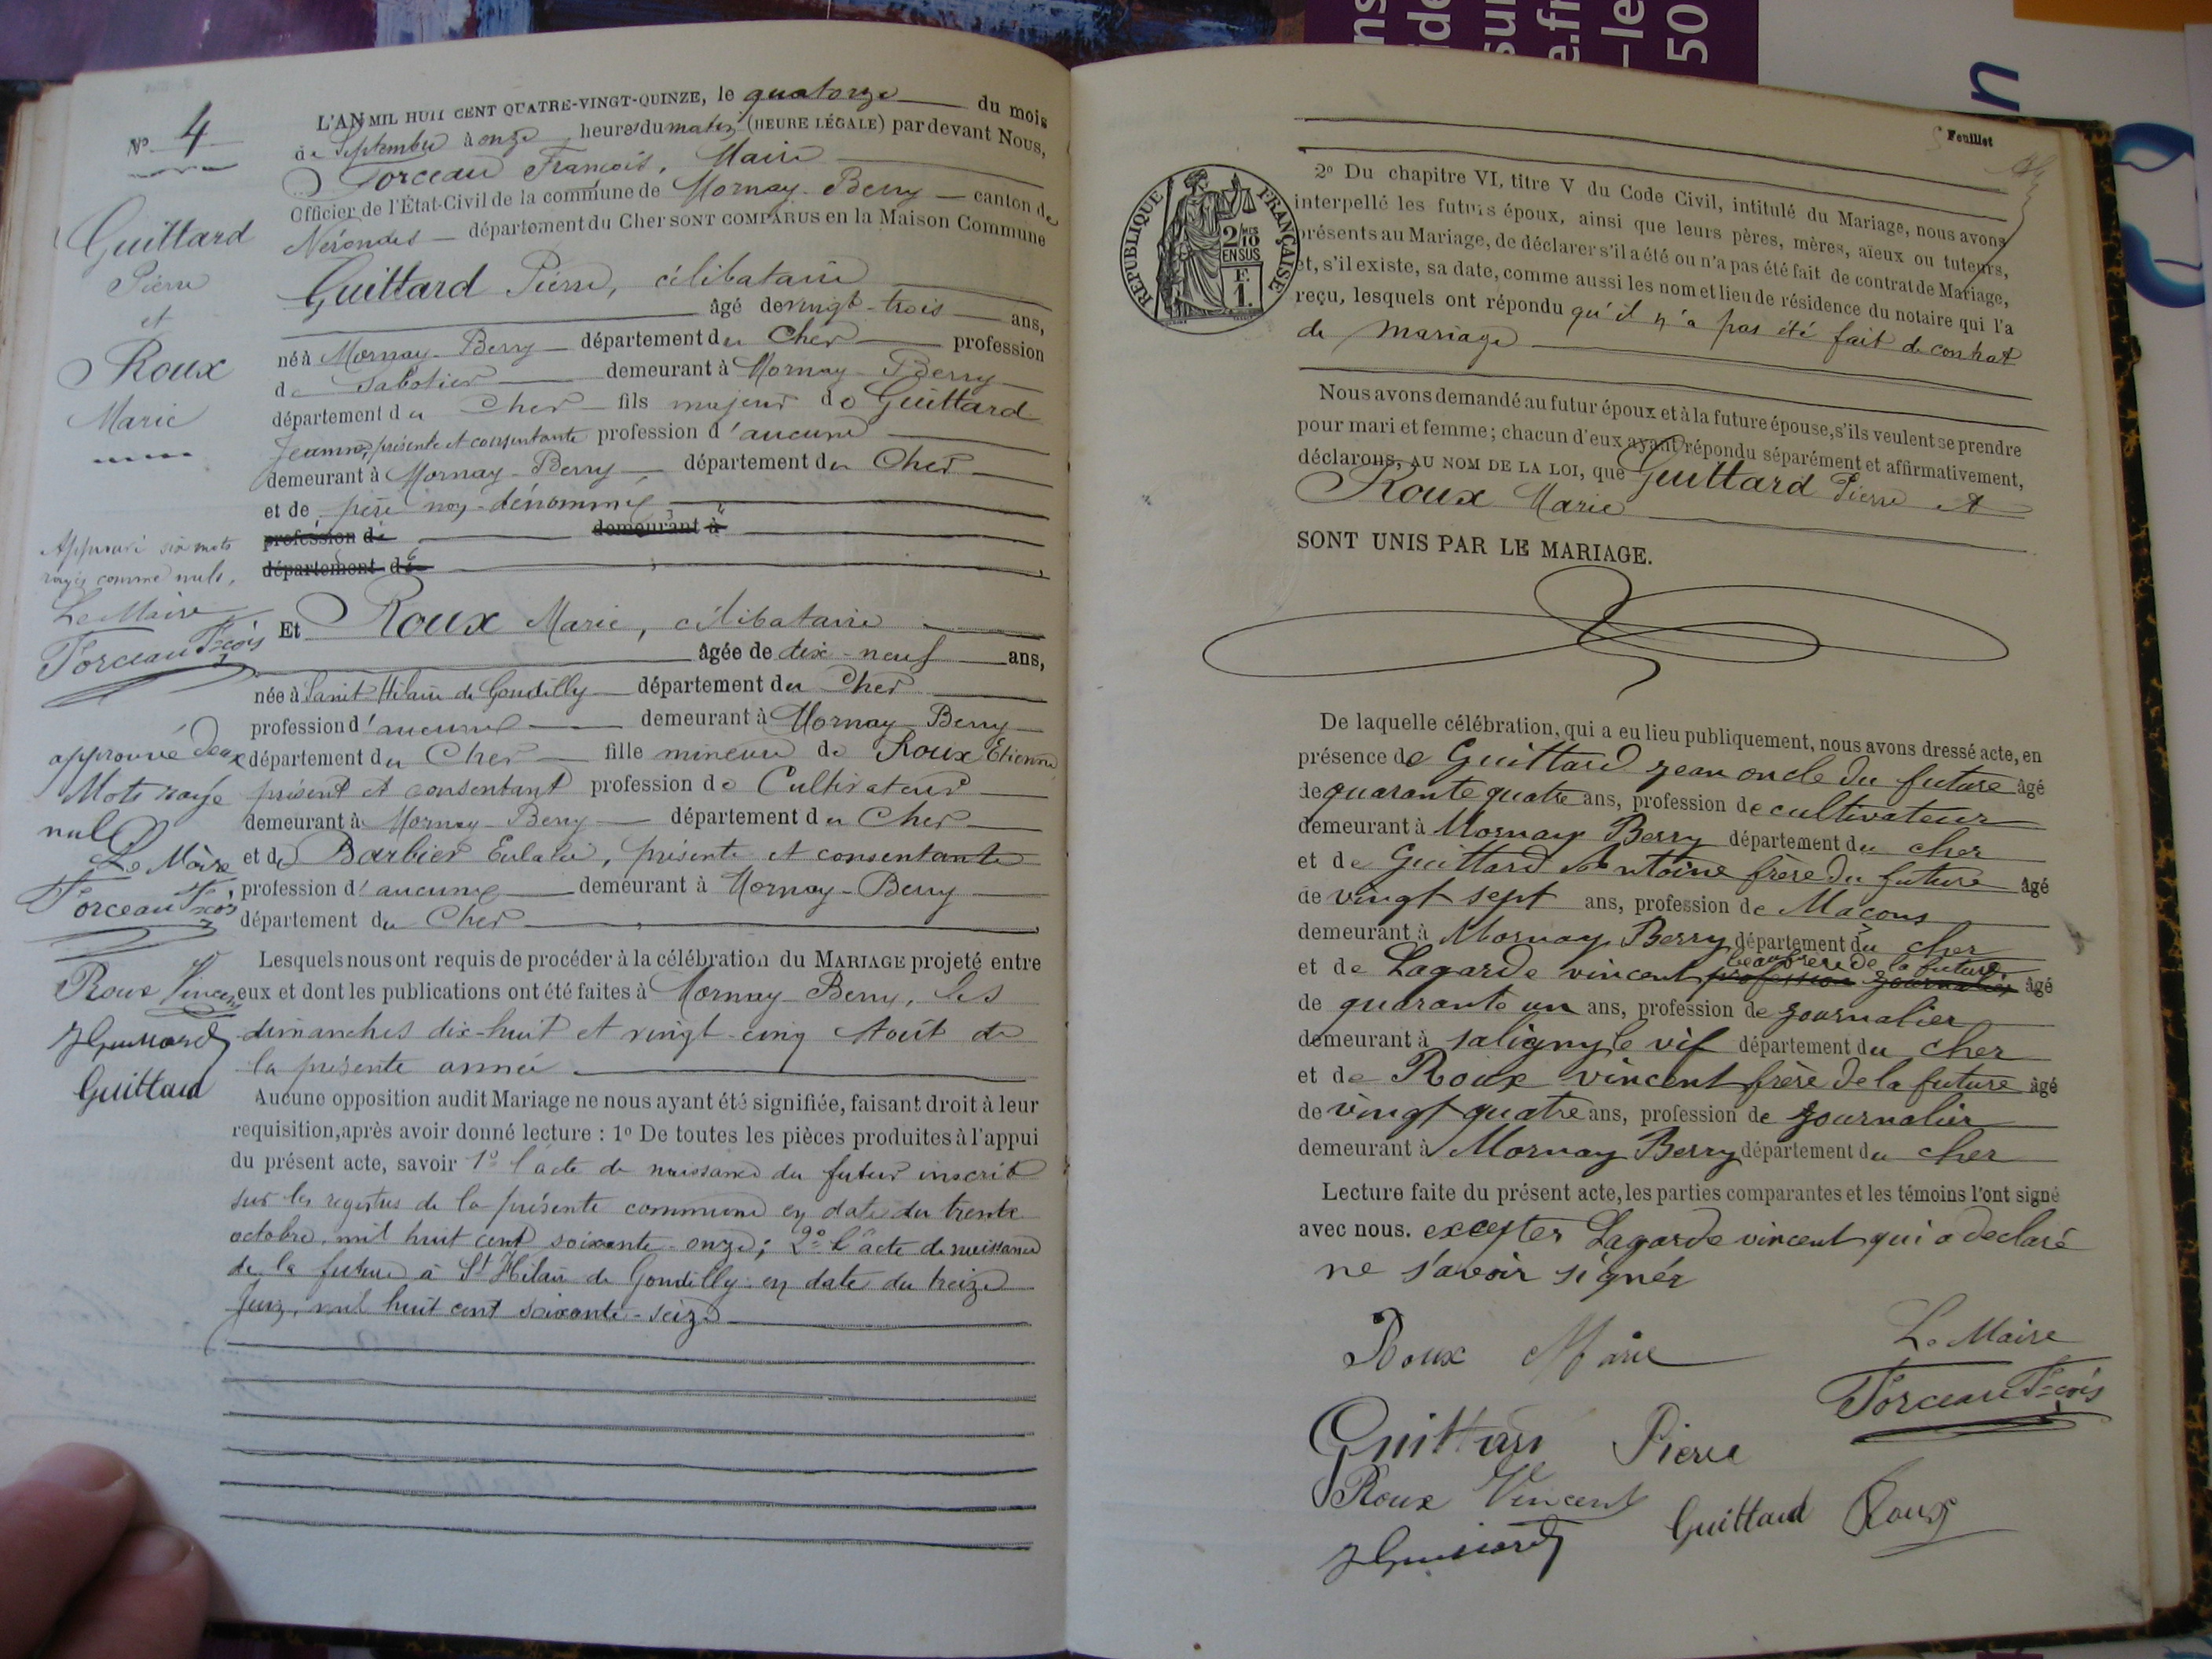 Nº 4
Guittard
Pierre
et
Roux
Marie
L'AN MIL HUIT CENT QUATRE-VINGT-QUINZE, le quatorze du mois
de Septembre à onze heures du matin (HEURE LÉGALE) par devant Nous,
Forceau François, Maire
Officier de l'État-Civil de la commune de Mornay-Berry canton de
Nérondes département du Cher SONT COMPARUS en la Maison Commune
Guittard Pierre, célibataire
âgé de vingt-trois ans,
né à Mornay-Berry département du Cher profession
de Sabotier demeurant à Mornay-Berry
département du Cher fils majeur de Guittard
Jeanne, présente et consentante profession d'aucune
demeurant à Mornay-Berry département du Cher
et de père non-dénommé
profession de demeurant à
département de
Approuvé six mots
rayés comme nuls,
Le Maire
Forceau Fçois
Et Roux Marie, célibataire
âgée de dix-neuf ans,
née à Saint Hilaire de Gondilly département du Cher
profession d'aucune demeurant à Mornay-Berry
département du Cher fille mineure de Roux Etienne
présent et consentant profession de Cultivateur
demeurant à Mornay-Berry département du Cher
et de Barbier Eulalie, présente et consentante
profession d'aucune demeurant à Mornay-Berry
département du Cher
approuvé deux
Mots raye
nul
Le Maire
Forceau Fçois
Roux Vincent
Guittard
Lesquels nous ont requis de procéder à la célébration du MARIAGE projeté entre
eux et dont les publications ont été faites à Mornay-Berry, les
dimanches dix-huit et vingt-cinq Août de
la présente année
Aucune opposition audit Mariage ne nous ayant été signifiée, faisant droit à leur
requisition, après avoir donné lecture : 1º De toutes les pièces produites à l'appui
du présent acte, savoir 1º l'acte de naissance du futur inscrit
sur les registres de la présente commune en date du trente
octobre, mil huit cent soixante-onze; 2º l'acte de naissance
de la future à St Hilaire de Gondilly en date du treize
Juin, mil huit cent soixante-seize
Feuillet
REPUBLIQUE FRANÇAISE
2/10 EN SUS
F.
1.
2º Du chapitre VI, titre V du Code Civil, intitulé du Mariage, nous avons
interpellé les futurs époux, ainsi que leurs pères, mères, aïeux ou tuteurs,
présents au Mariage, de déclarer s'il a été ou n'a pas été fait de contrat de Mariage,
et, s'il existe, sa date, comme aussi les nom et lieu de résidence du notaire qui l'a
reçu, lesquels ont répondu qu'il n'a pas été fait de contrat
de mariage
Nous avons demandé au futur époux et à la future épouse, s'ils veulent se prendre
pour mari et femme; chacun d'eux ayant répondu séparément et affirmativement,
déclarons, AU NOM DE LA LOI, que Guittard Pierre et
Roux Marie
SONT UNIS PAR LE MARIAGE.
De laquelle célébration, qui a eu lieu publiquement, nous avons dressé acte, en
présence de Guittard jean oncle du future âgé
de quarante quatre ans, profession de cultivateur
demeurant à Mornay Berry département du cher
et de Guittard Antoine frère du future âgé
de vingt sept ans, profession de Macons
demeurant à Mornay Berry département du cher
et de Lagarde vincent profession journalier beaufrere de la future âgé
de quarante un ans, profession de journalier
demeurant à saligny le vif département du cher
et de Roux vincent frère de la future âgé
de vingt quatre ans, profession de journalier
demeurant à Mornay Berry département du cher
Lecture faite du présent acte, les parties comparantes et les témoins l'ont signé
avec nous. excepter Lagarde vincent qui a declaré
ne s'avoir signér
Roux Marie
Le Maire
Forceau Fçois
Guittard Pierre
Roux Vincent
Guittard Roux